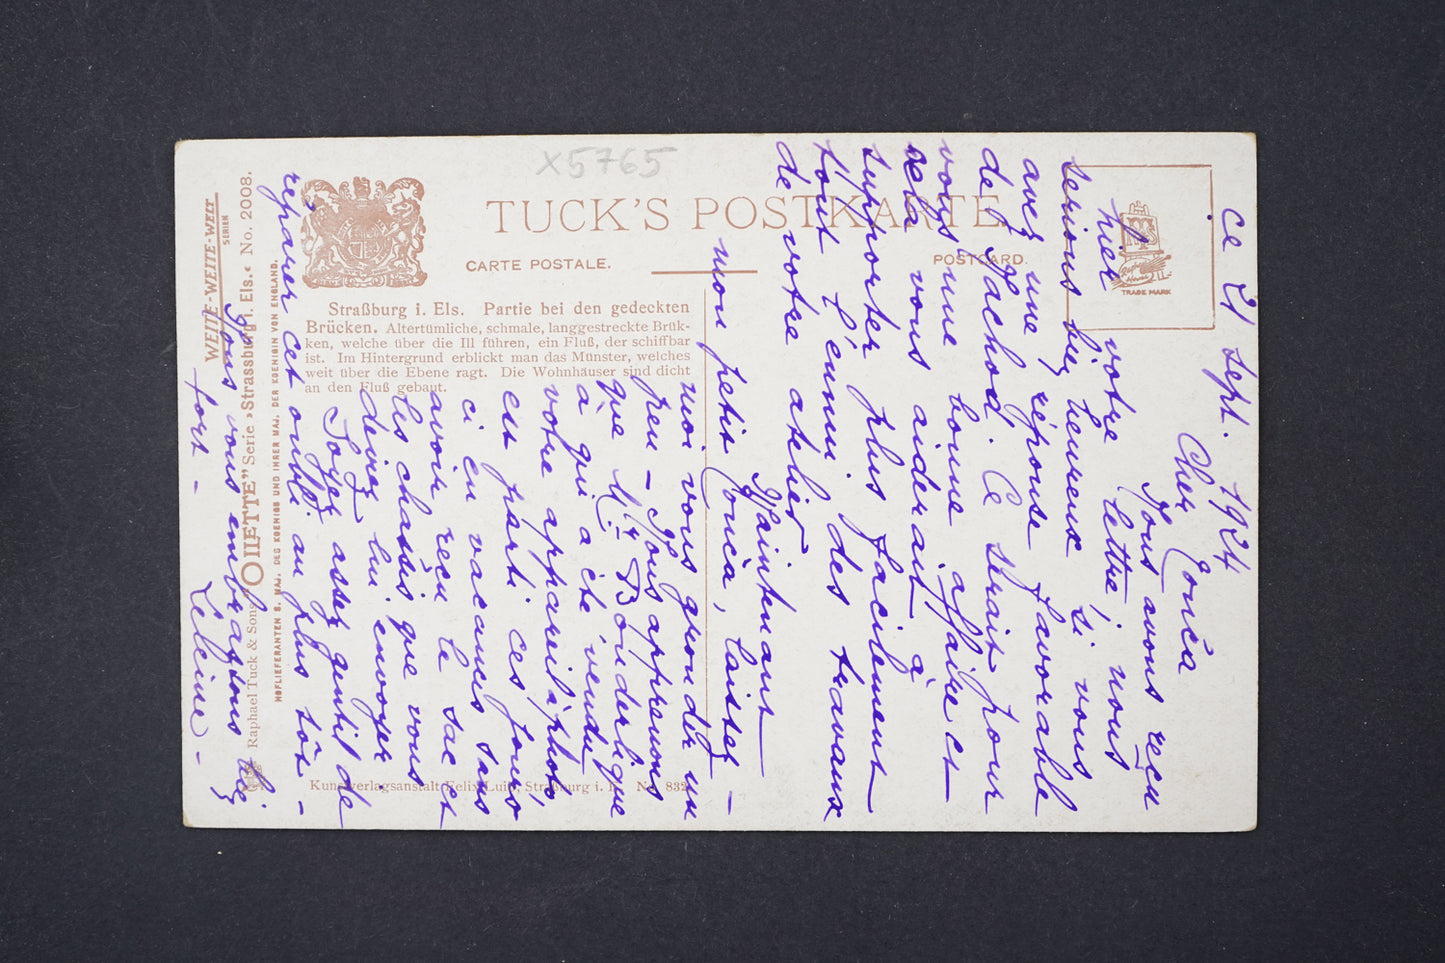 X5765
TUCK'S POSTKARTE
CARTE POSTALE.
POSTCARD.
TRADE MARK
Straßburg i. Els. Partie bei den gedeckten
Brücken. Altertümliche, schmale, langgestreckte Brük-
ken, welche über die Ill führen, ein Fluß, der schiffbar
ist. Im Hintergrund erblickt man das Münster, welches
weit über die Ebene ragt. Die Wohnhäuser sind dicht
an den Fluß gebaut.
WEITE-WEITE-WELT
SERIEN
Raphael Tuck & Sons "OILETTE" Serie »Strassburg i. Els.« No. 2008.
HOFLIEFERANTEN S. MAJ. DES KOENIGS UND IHRER MAJ. DER KOENIGIN VON ENGLAND.
Kunstverlagsanstalt Felix Luib, Straßburg i. E. No. 832
Ce 21 Sept. 1924
Cher
Nous avons reçu
hier votre lettre, nous
serions bien heureux si vous
avez une réponse favorable
de Ce serait pour
vous une bonne affaire et
cela vous aiderait à
supporter plus facilement
tout l'ennui des travaux
de votre atelier
Maintenant
mon petit laissez-
moi vous gronder un
peu - Nous apprenons
que
à qui a été vendu
votre appareil photo,
est parti ces jours
ci en vacances sans
avoir reçu le sac et
les chassis que vous
deviez lui envoyer
Soyez assez gentil de
réparer cet oubli au plus tôt -
Nous vous embrassons bien
fort -